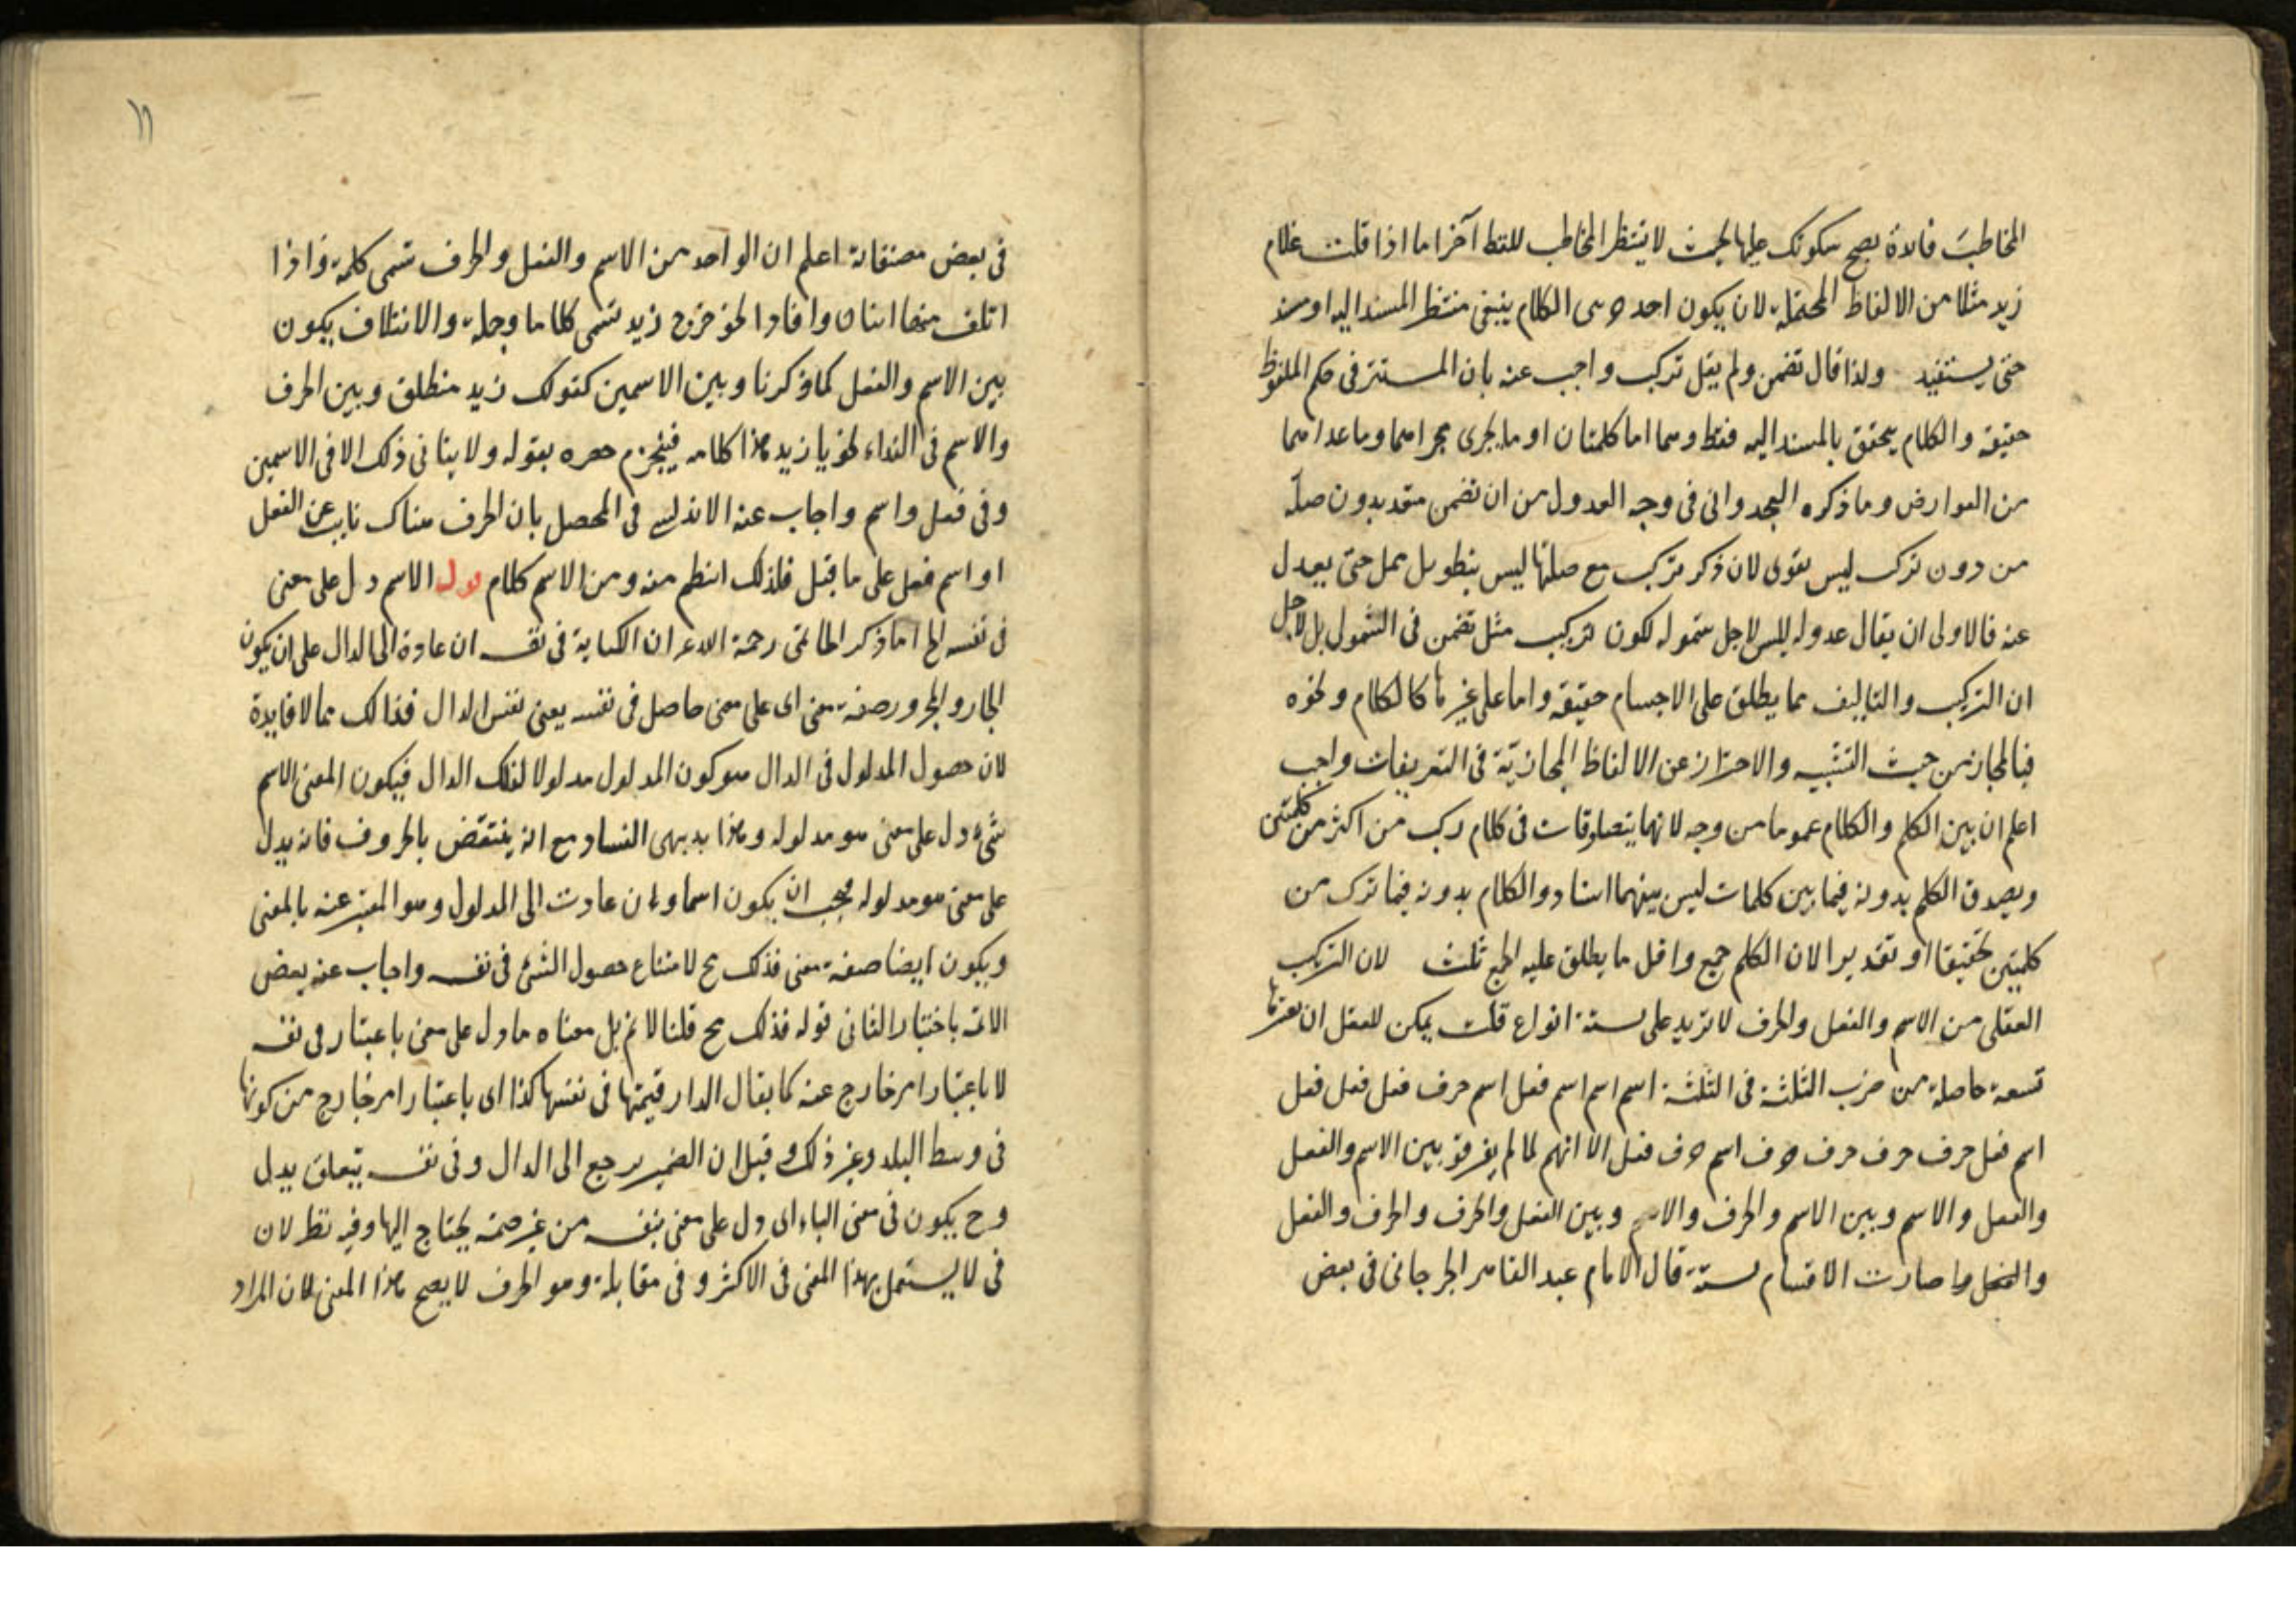 المخاطبَ فائدة يصح سكوتك عليها بحيث لا ينتظر المخاطب للفظ آخر اما اذا قلت غلام
زيد مثلا من الالفاظ المحتملة لان يكون احد الكلام ينبغى منتظر المسند اليه او مسند
حتى يستفيد ولذا قال تضمن ولم يقل تركب واجيب عنه بان المستتر فى حكم الملفوظ
حقيقة والكلام يتحقق بالمسند اليه فقط وهما اما كلمتان او ما يجرى مجراهما وما عداهما
من العوارض وما ذكره فى وجه العدول من ان تضمن متعد بدون صلة
من دون تركب ليس بقوى لان ذكر تركب مع صلتها ليس بتطويل ممل حتى يعدل
عنه فالاولى ان يقال عدوله ليس لاجل شموله لكون تركب مثل تضمن فى الشمول بل لاجل
ان التركيب والتاليف مما يطلق على الاجسام حقيقة واما على غيرها كالكلام ونحوه
فبالمجاز من حيث التشبيه والاحتراز عن الالفاظ المجازية فى التعريفات واجب
اعلم ان بين الكلم والكلام عموما من وجه لانهما يتصادقات فى كلام ركب من اكثر من كلمتين
ويصدق الكلم بدونه فيما بين كلمات ليس بينهما اسناد والكلام بدونه فيما ترك من
كلمتين تحقيقا او تقديرا لان الكلم جمع واقل ما يطلق عليه الجمع ثلث لان التركيب
العقلى من الاسم والفعل والحرف لا تزيد على ستة انواع قلت يمكن للعقل ان يعتبرها
تسعة حاصلة من ضرب الثلثة فى الثلثة اسم اسم اسم فعل اسم حرف فعل فعل فعل
اسم فعل حرف حرف حرف حرف اسم حرف فعل الا انهم لما لم يفرقو بين الاسم والفعل
والفعل والاسم وبين الاسم والحرف والحرف والاسم وبين الفعل والحرف والحرف والفعل
صارت الاقسام ستة قال الامام عبد القاهر الجرجانى فى بعض
١١
فى بعض مصنفاته اعلم ان الواحد من الاسم والفعل والحرف تسمى كلمة واذا
ائتلف منها اثنان وافادا نحو خرج زيد تسمى كلاما وجملة والائتلاف يكون
بين الاسم والفعل كما ذكرنا وبين الاسمين كقولك زيد منطلق وبين الحرف
والاسم فى النداء نحو يا زيد هذا كلامه فينجزم حصره بقوله ولا يتاتى ذلك الا فى الاسمين
وفى فعل واسم واجاب عنه الاندلسى فى المحصل بان الحرف هناك نايب عن الفعل
او اسم فعل على ما قيل فلذلك انتظم منه ومن الاسم كلام قوله الاسم دل على معنى
فى نفسه الخ اما ذكر رحمة الله ان الكناية فى نفسه ان عادة الى الدال على ان يكون
الجار والمجرور صفة معنى اى على معنى حاصل فى نفسه يعنى نفس الدال فذالك مما لا فايدة
لان حصول المدلول فى الدال هو كون المدلول مدلولا لذلك الدال فيكون المعنى الاسم
شئ دل على معنى هو مدلوله وهذا بديهى الفساد مع انه ينتقض بالحروف فانه يدل
على معنى هو مدلوله فيجب ان يكون اسما وان عادت الى المدلول وهو المعبر عنه بالمعنى
ويكون ايضا صفة معنى فذلك مح لامتناع حصول الشئ فى نفسه واجاب عنه بعض
الائمة باختيار الثانى قوله فذلك مح قلنا لا نم بل معناه ما دل على معنى باعتباره فى نفسه
لا باعتبار امر خارج عنه كما يقال الدار قيمتها فى نفسها كذا اى باعتبار امر خارج من كونها
فى وسط البلد وغير ذلك وقيل ان الضمير يرجع الى الدال وفى نفسه يتعلق بدل
وح يكون فى معنى الباء اى دل على معنى بنفسه من غير ضمة يحتاج اليها وفيه نظر لان
فى لا يستعمل بهذا المعنى فى الاكثر وفى مقابلة وهو الحرف لا يصح هذا المعنى لان المراد